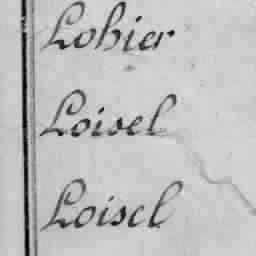 Lohier
Loisel
Loisel